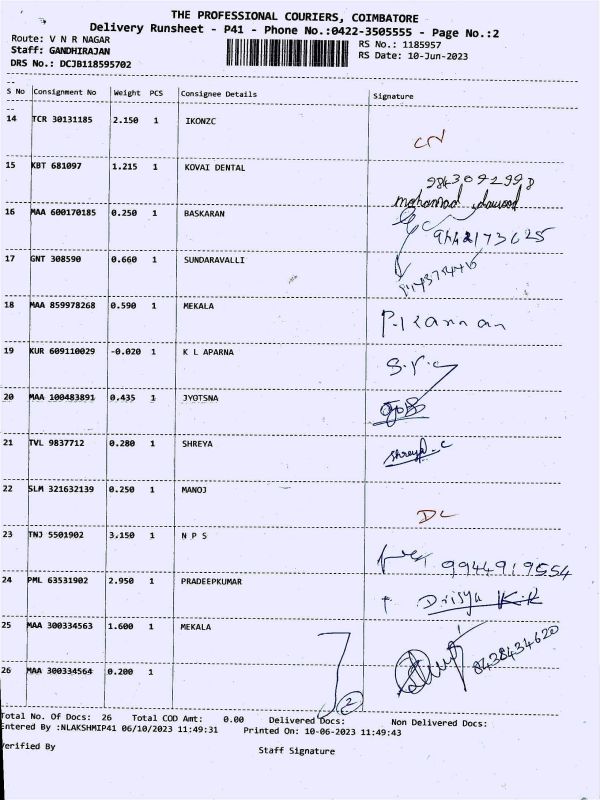 THE PROFESSIONAL COURIERS, COIMBATORE
Delivery Runsheet - P41 - Phone No.:0422-3505555 - Page No.:2
Route: V N R NAGAR
RS No.: 1185957
Staff: GANDHIRAJAN
RS Date: 10-Jun-2023
DRS No.: DCJB118595702
S No Consignment No Weight PCS Consignee Details Signature
14 TCR 30131185 2.150 1 IKONZC
CN
15 KBT 681097 1.215 1 KOVAI DENTAL
9843092998
mohamad dawood
16 MAA 600170185 0.250 1 BASKARAN
9442173625
17 GNT 308590 0.660 1 SUNDARAVALLI
18 MAA 859978268 0.590 1 MEKALA
P.I Kannan
19 KUR 609110029 -0.020 1 K L APARNA
20 MAA 100483891 0.435 1 JYOTSNA
21 TVL 9837712 0.280 1 SHREYA
Shreya.C
22 SLM 321632139 0.250 1 MANOJ
DL
23 TNJ 5501902 3.150 1 N P S
9944919554
24 PML 63531902 2.950 1 PRADEEPKUMAR
Drisya K.K
25 MAA 300334563 1.600 1 MEKALA
8438434620
26 MAA 300334564 0.200 1
2
Total No. Of Docs: 26 Total COD Amt: 0.00 Delivered Docs: Non Delivered Docs:
Entered By :NLAKSHMIP41 06/10/2023 11:49:31 Printed On: 10-06-2023 11:49:43
Verified By
Staff Signature